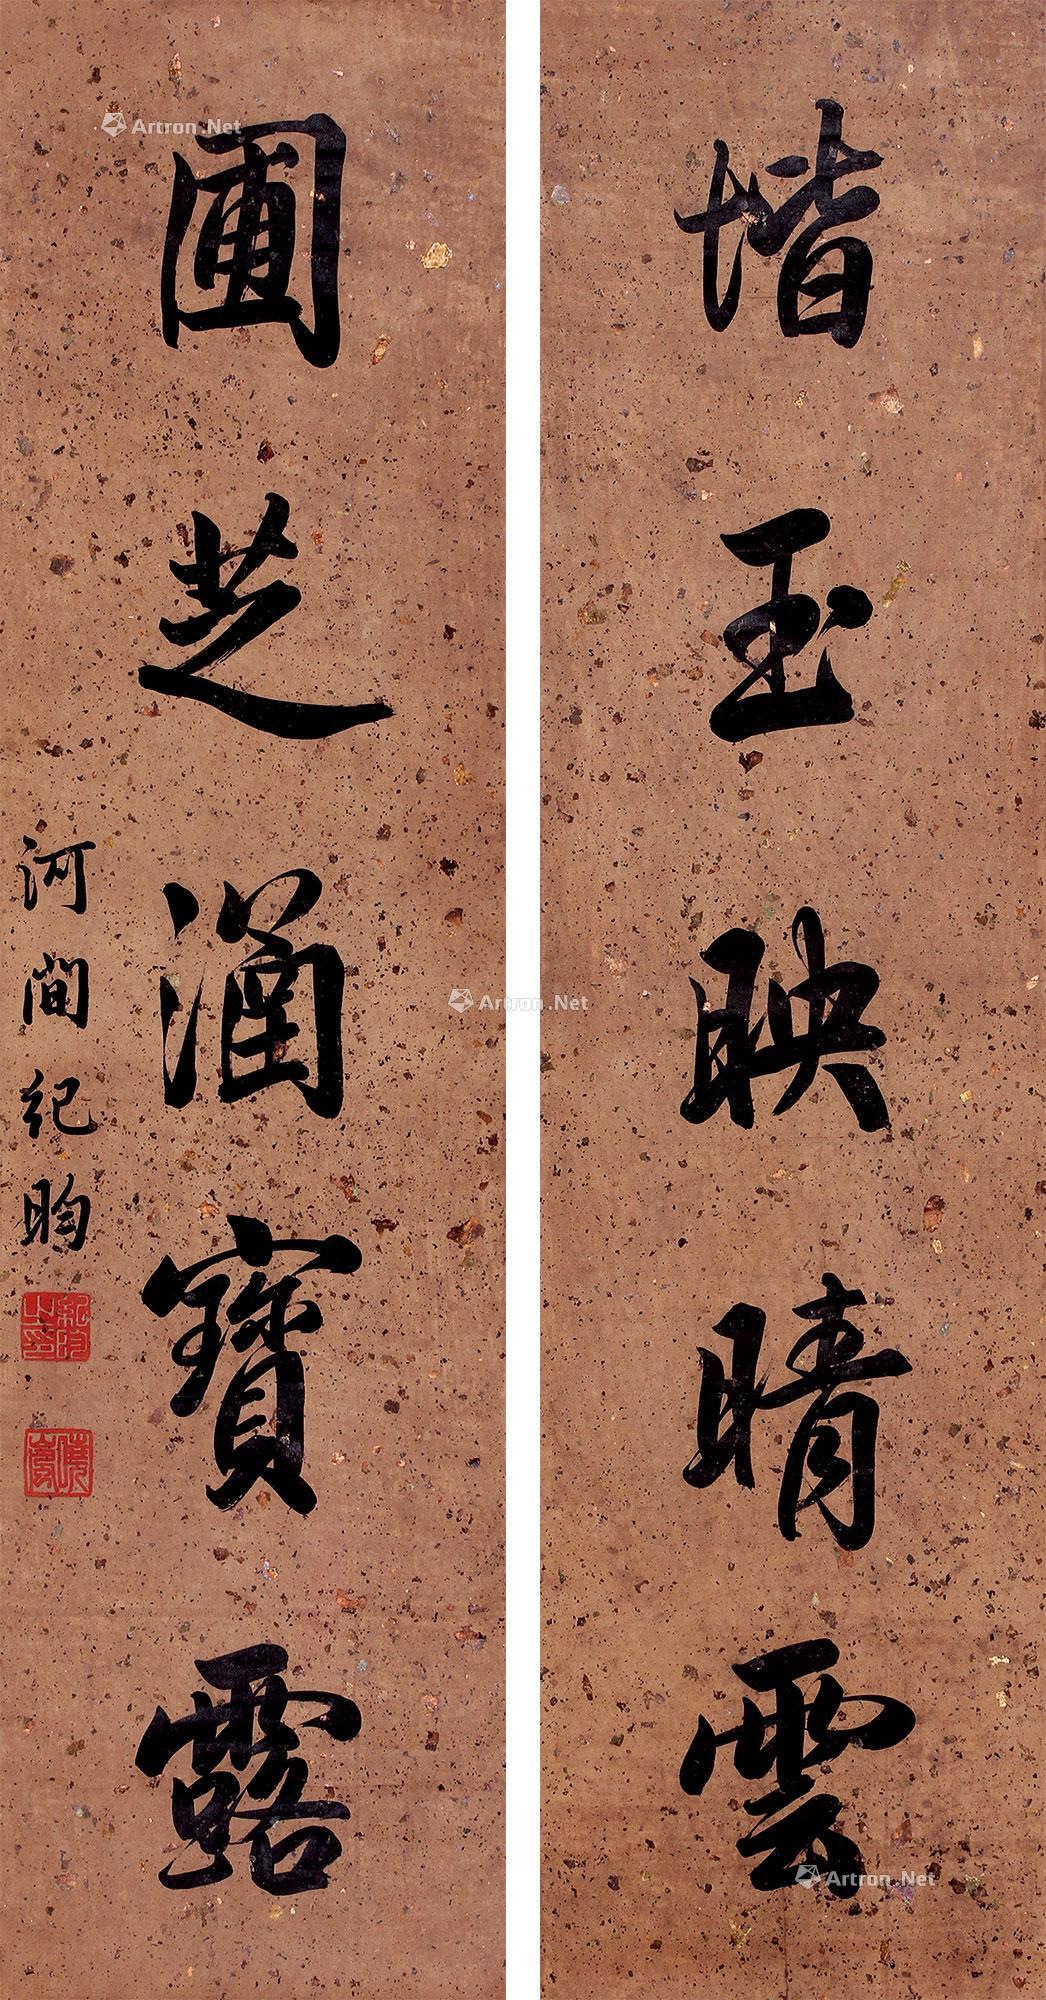 堦玉映晴雲
圃芝涵寶露
河間紀昀
紀昀之印
Artron.Net
Artron.Net
Artron.Net